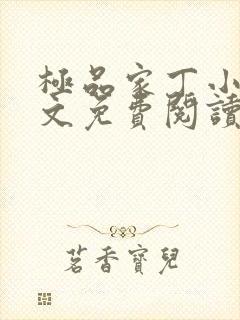 極品家丁小
文免費閱讀
茗香寶兒